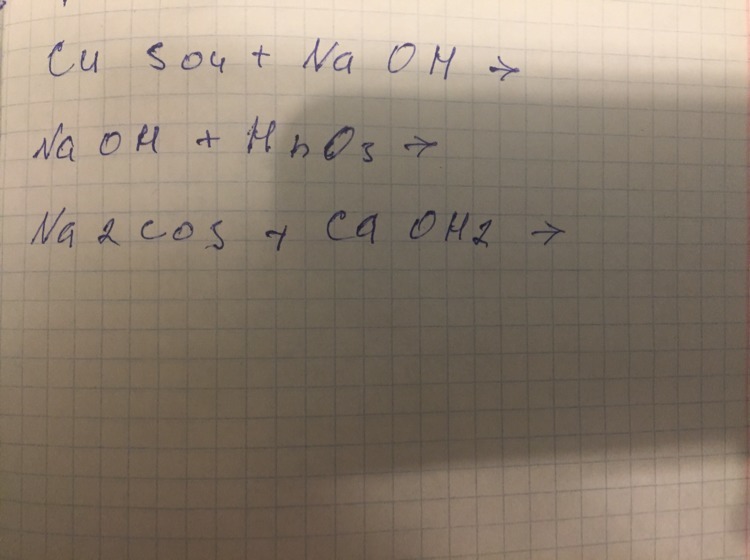 Cu SO4 + Na OH →
Na OH + HnO3 →
Na2CO3 + Ca OH2 →